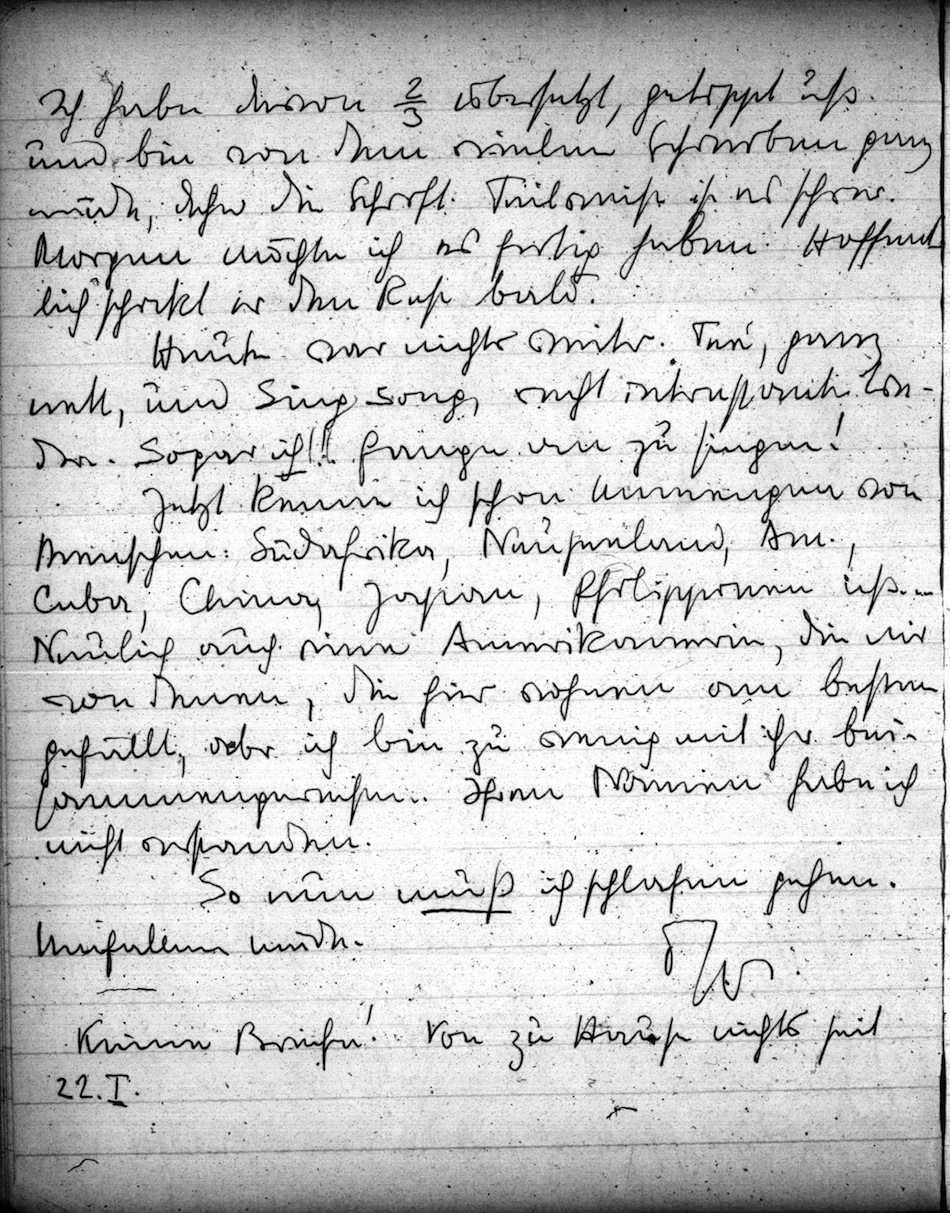 Ich habe davon 2/3 übersetzt, getippt usf.
und bin von dem vielen Schreiben ganz
müde, daher die Schrift. Teilweise ist es schwer.
Morgen möchte ich es fertig haben. Hoffent
lich schickt er den Rest bald.
Heute war nichts weiter. Tee, ganz
nett, und Sing song, recht interessante
Sogar ich!! fange an zu singen!
Jetzt kenne ich schon Unmengen von
Menschen: Südafrika, Neuseeland, Am.,
Cuba, China, Japan, Philippinen usf...
Neulich auch eine Amerikanerin, die mir
von denen, die hier wohnen am besten
gefällt, aber ich bin zu wenig mit ihr bei-
sammengewesen.. Ihren Namen habe ich
nicht verstanden.
So nun muß ich schlafen gehen.
müde.
Keine Briefe! Von zu Hause nichts seit
22. I.